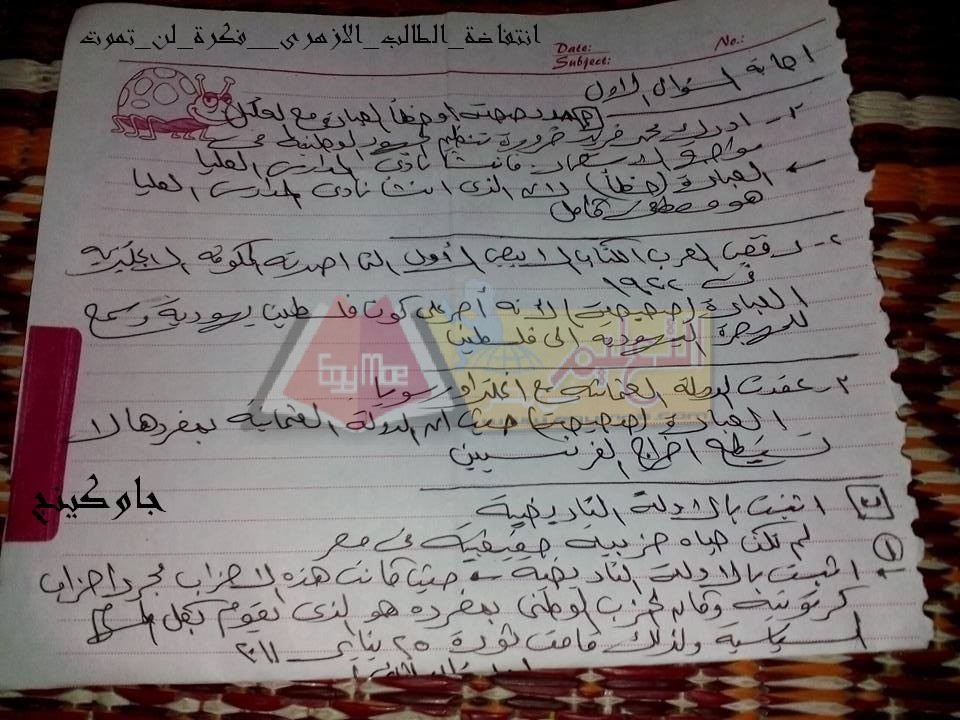 انتفاضة_الطالب_الازهرى__فكرة_لن_تموت
Date:
No.:
Subject:
اجابة السؤال الاول
صحة او خطأ العبارة مع التعليل
١- ادرك محمد فريد ضرورة تنظيم الجهود الوطنية فى
مواجهة الاستعمار فانشأ نادى المدارس العليا
العبارة (خطأ) لان الذى انشأ نادى المدارس العليا
هو مصطفى كامل
٢- رفض العرب الكتاب الابيض الأول الذى اصدرته الحكومة الانجليزية
فى ١٩٢٢
العبارة (صحيحة) لانه أصر على كون فلسطين يهودية وسمح
للهجرة اليهودية الى فلسطين
EgyMoe
التعليم
٣- عقدت الدولة العثمانية مع انجلترا و روسيا
العبارة (صحيحة) حيث ان الدولة العثمانية بمفردها لا
تستطيع اخراج الفرنسيين
جاوكينج
ب اثبت بالادلة التاريخية
١ لم تكن حياه حزبية حقيقية فى مصر
اثبت بالادلة التاريخية حيث كانت هذه الاحزاب مجرد احزاب
كرتونية وكان الحزب الوطنى بمفرده هو الذى يقوم بكل
السياسية ولذلك قامت ثورة ٢٥ يناير ٢٠١١